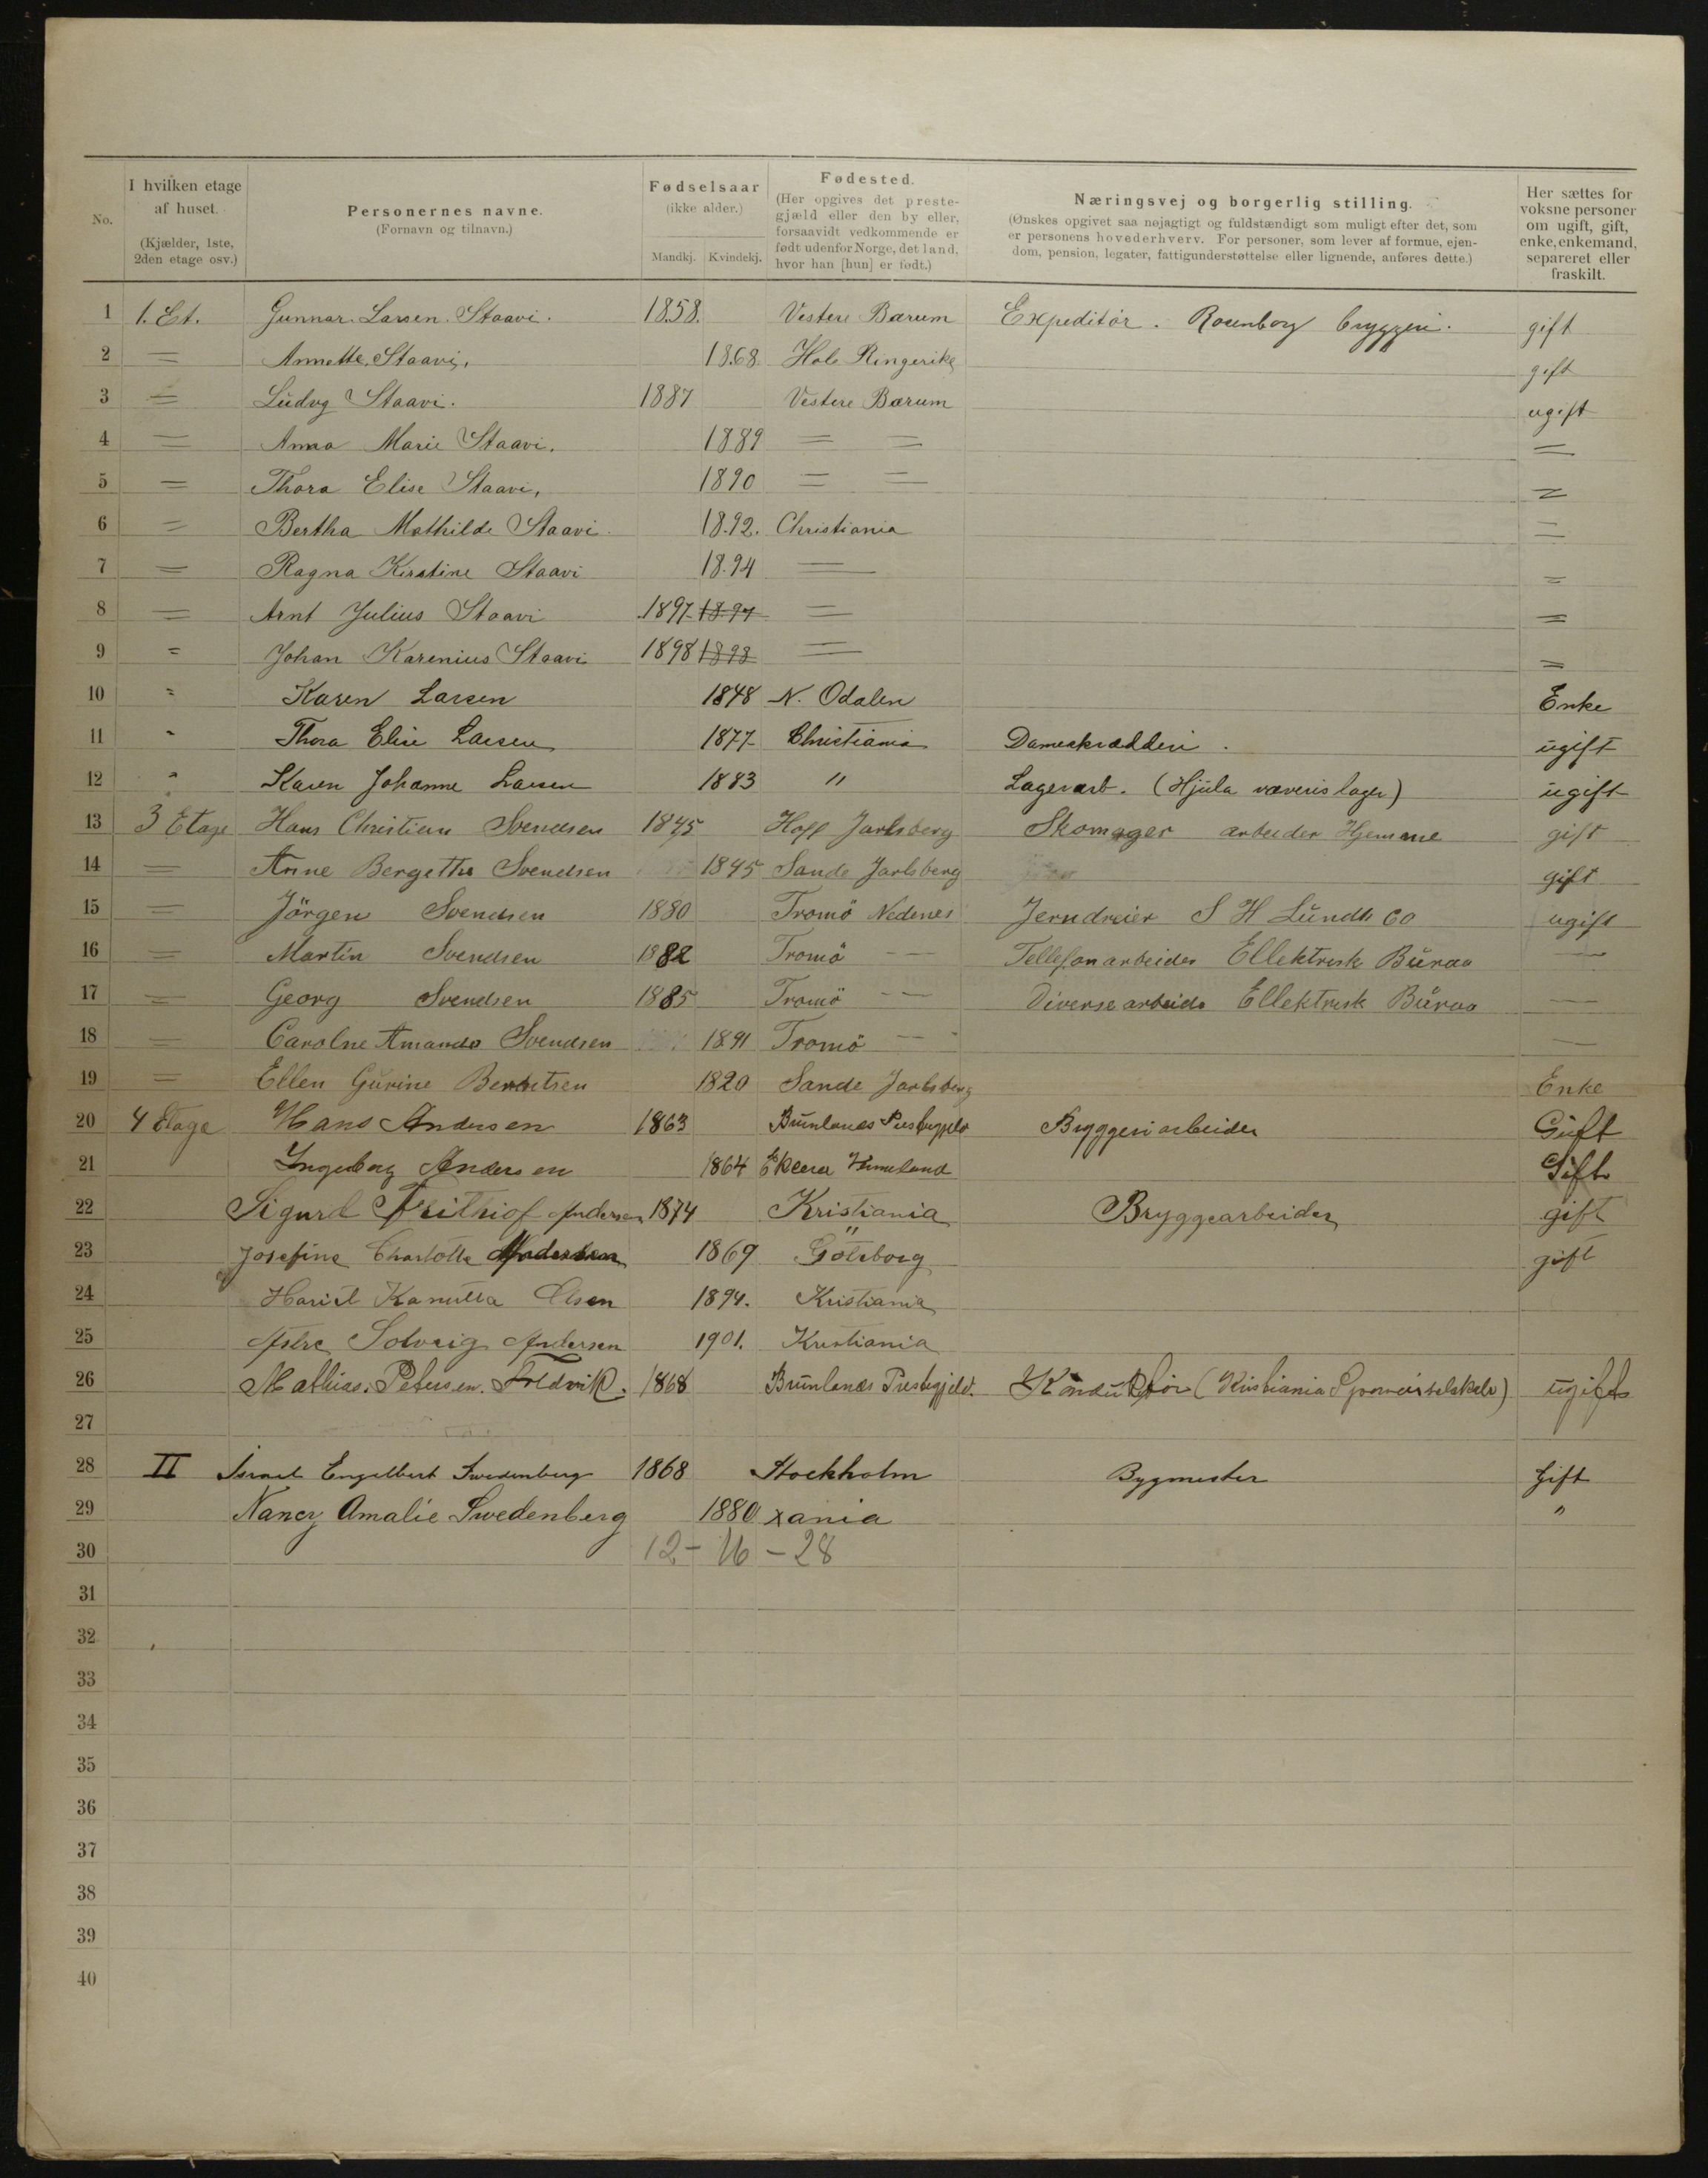 No. | I hvilken etage af huset. (Kjælder, 1ste, 2den etage osv.) | Personernes navne. (Fornavn og tilnavn.) | Fødselsaar (ikke alder.) Mandkj. Kvindekj. | Fødested. (Her opgives det prestegjæld eller den by eller, forsaavidt vedkommende er født udenfor Norge, det land, hvor han [hun] er født.) | Næringsvej og borgerlig stilling. (Ønskes opgivet saa nøjagtigt og fuldstændigt som muligt efter det, som er personens hovederhverv. For personer, som lever af formue, ejendom, pension, legater, fattigunderstøttelse eller lignende, anføres dette.) | Her sættes for voksne personer om ugift, gift, enke, enkemand, separeret eller fraskilt.
1 1. Et. Gunnar Larsen Staavi. 1858. Vestere Bærum Expeditør. Rosenborg bryggeri. gift
2 = Annette Staavi. 1868. Hole Ringerike gift
3 = Ludvg Staavi. 1887 Vestere Bærum ugift
4 = Anna Marie Staavi. 1889 = = =
5 = Thora Elise Staavi, 1890 = = =
6 = Bertha Mathilde Staavi. 1892. Christiania =
7 = Ragna Kirstine Staavi 1894 = =
8 = Arnt Julius Staavi 1897 1897 = =
9 = Johan Karenius Staavi 1898 1898 = =
10 " Karen Larsen 1848 N. Odalen Enke
11 " Thora Elise Larsen 1877 Christiania Dameskrædderi. ugift
12 " Karen Johanne Larsen 1883 " Lagerarb. (Hjula væveris lager) ugift
13 3 Etage Hans Christian Svendsen 1845 Hoff Jarlsberg Skomager arbeider Hjemme gift
14 = Anne Bergethe Svendsen 1845 Sande Jarlsberg gift
15 = Jörgen Svendsen 1880 Tromö Nedenes Jerndreier S H Lundh Co ugift
16 = Martin Svendsen 1882 Tromö — Tellefonarbeider Ellektrisk Büraa —
17 = Georg Svendsen 1885 Tromö — Diverse arbeide Ellektrisk Büraa —
18 = Carolne Amanda Svendsen 1891 Tromö — —
19 = Ellen Gurine Berntsen 1820 Sande Jarlsberg Enke
20 4 Etage Hans Andersen 1863 Brunlanes Prestegjeld Bryggeriarbeider Gift
21 Ingeborg Andersen 1864 Gift
22 Sigurd Frithiof Andersen 1874 Kristiania Bryggearbeider gift
23 Josefine Charlotte Andersen 1869 Göteborg gift
24 Olsen 1894. Kristiania
25 Solveig Andersen 1901. Kristiania
26 Mathias Petersen Foldvik. 1868 Brunlanes Prestegjeld. Konduktør (Kristiania Sporveisselskab) ugift
27
28 II Israel Engelbert Swedenberg 1868 Stockholm Bygmester Gift
29 Nancy Amalie Swedenberg 1880 xania "
30 12 - 16 - 28
31
32
33
34
35
36
37
38
39
40